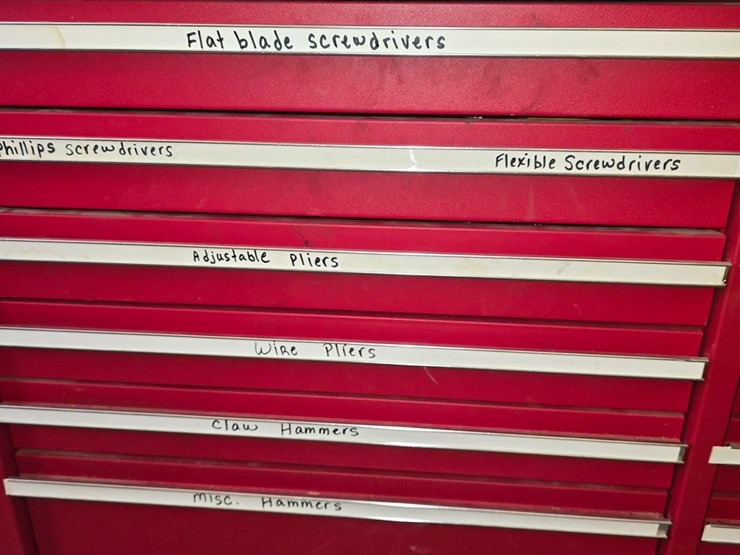 Flat blade screwdrivers
Phillips screwdrivers Flexible Screwdrivers
Adjustable Pliers
Wire Pliers
Claw Hammers
Misc. Hammers